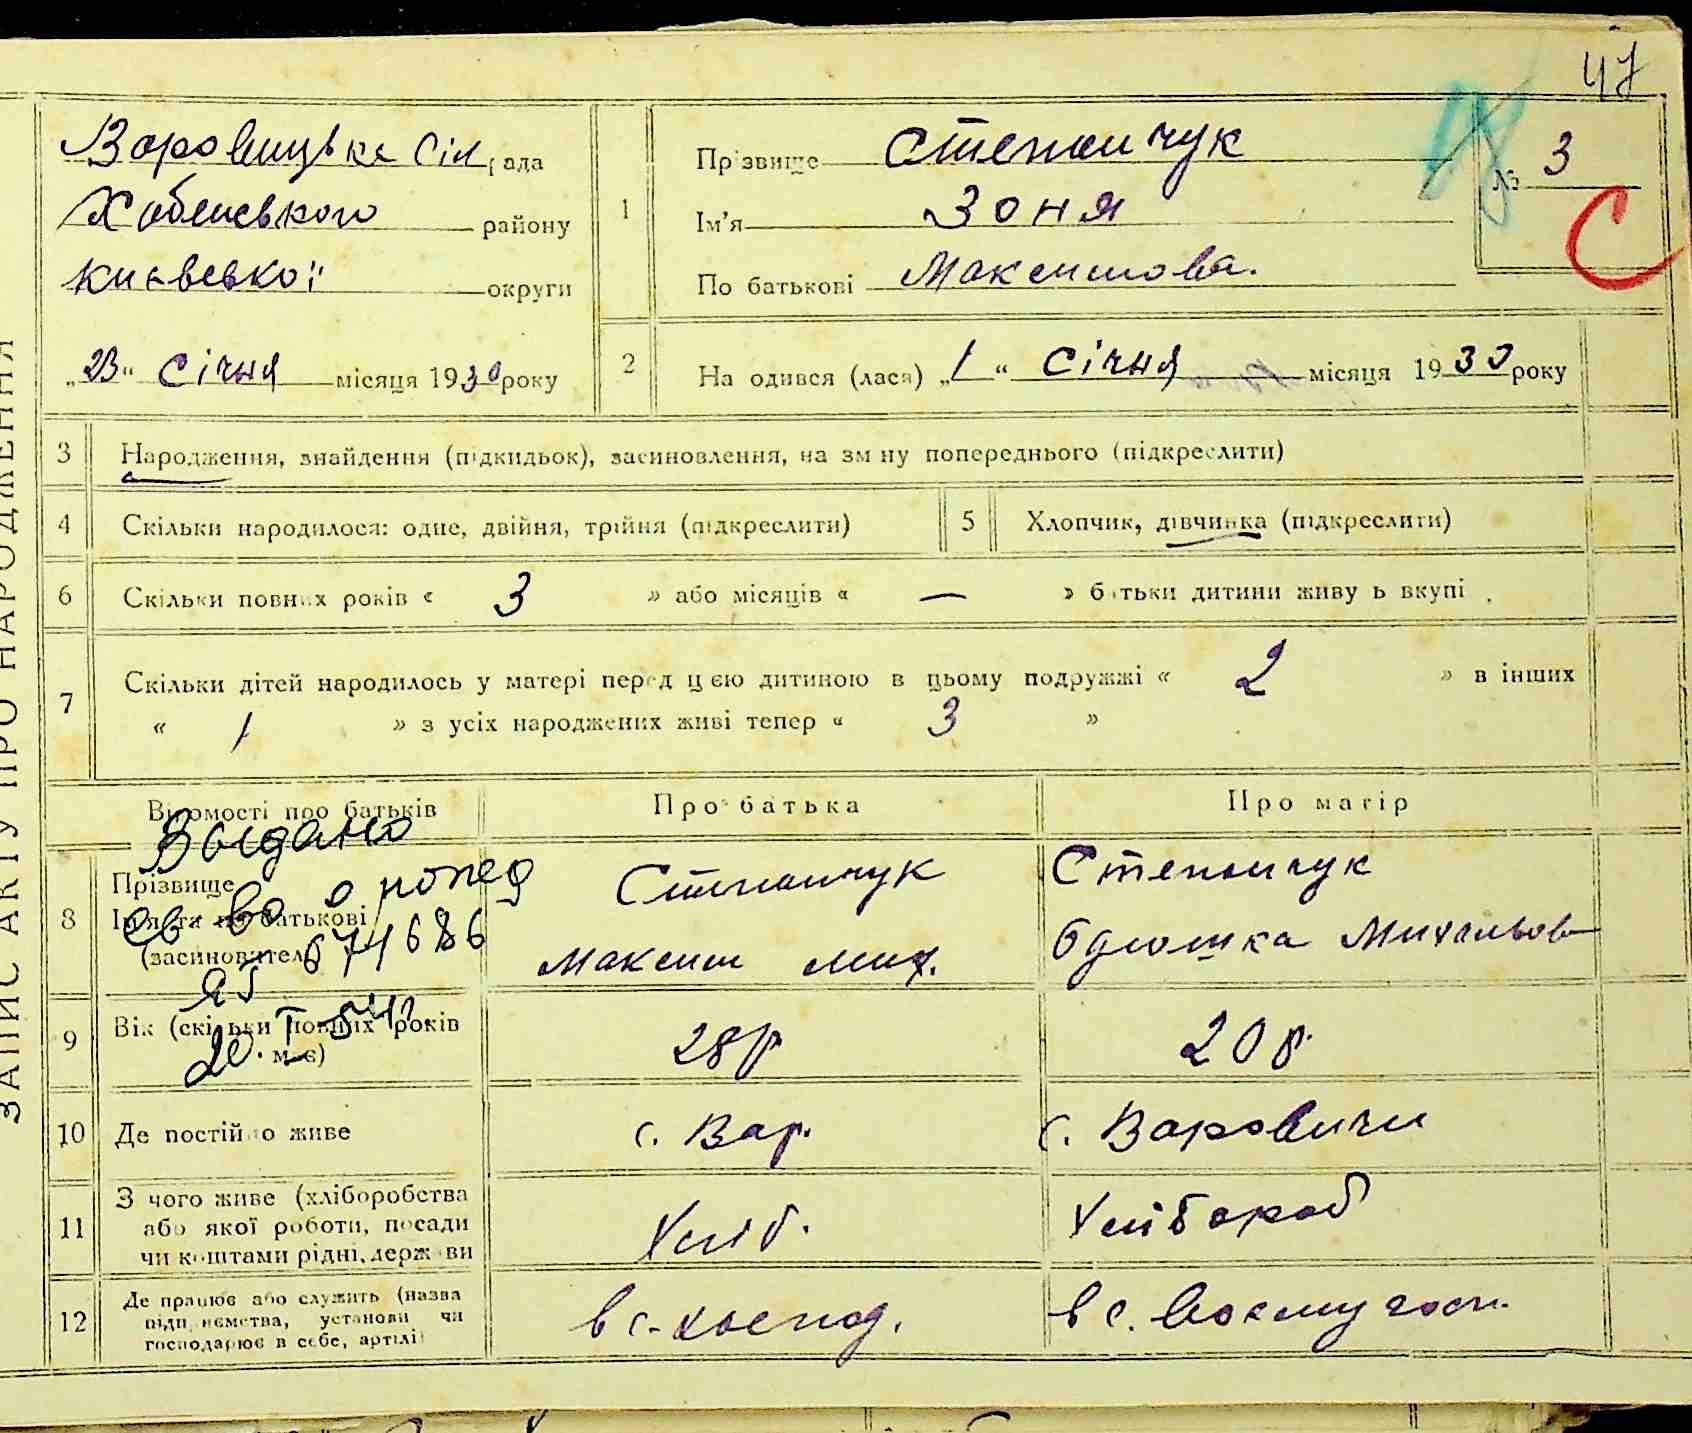 47
ЗАПИС АКТУ ПРО НАРОДЖЕННЯ
Варовицька сіл рада
Хабенського району
Київської округи
„23" Січня місяця 1930 року
1
Прізвище Степанчук
Ім'я Зоня
По батькові Максимова.
№ 3
С
2
Народився (лася) „1" Січня місяця 1930 року
3 Народження, знайдення (підкидьок), засиновлення, на зміну попереднього (підкреслити)
4 Скільки народилося: одне, двійня, трійня (підкреслити)
5 Хлопчик, дівчинка (підкреслити)
6 Скільки повних років « 3 » або місяців « — » батьки дитини живуть вкупі
7 Скільки дітей народилось у матері перед цією дитиною в цьому подружжі « 2 » в інших
« 1 » з усіх народжених живі тепер « 3 »
Відомості про батьків
Про батька
Про матір
Выдано
св-во о рожд
674686
20. I-54г.
8 Прізвище
Ім'я та по батькові
(засиновител
Степанчук
Максим Мих.
Степанчук
Михальов
9 Вік (скільки повних років має)
28 р
20 р.
10 Де постійно живе
с. Вар.
с. Варовичи
11 З чого живе (хліборобства
або якої роботи, посади
чи коштами рідні, держави
Хліб.
Хлібороб
12 Де працює або служить (назва
підприємства, установи чи
господарює в себе, артілі)
в с. госп.